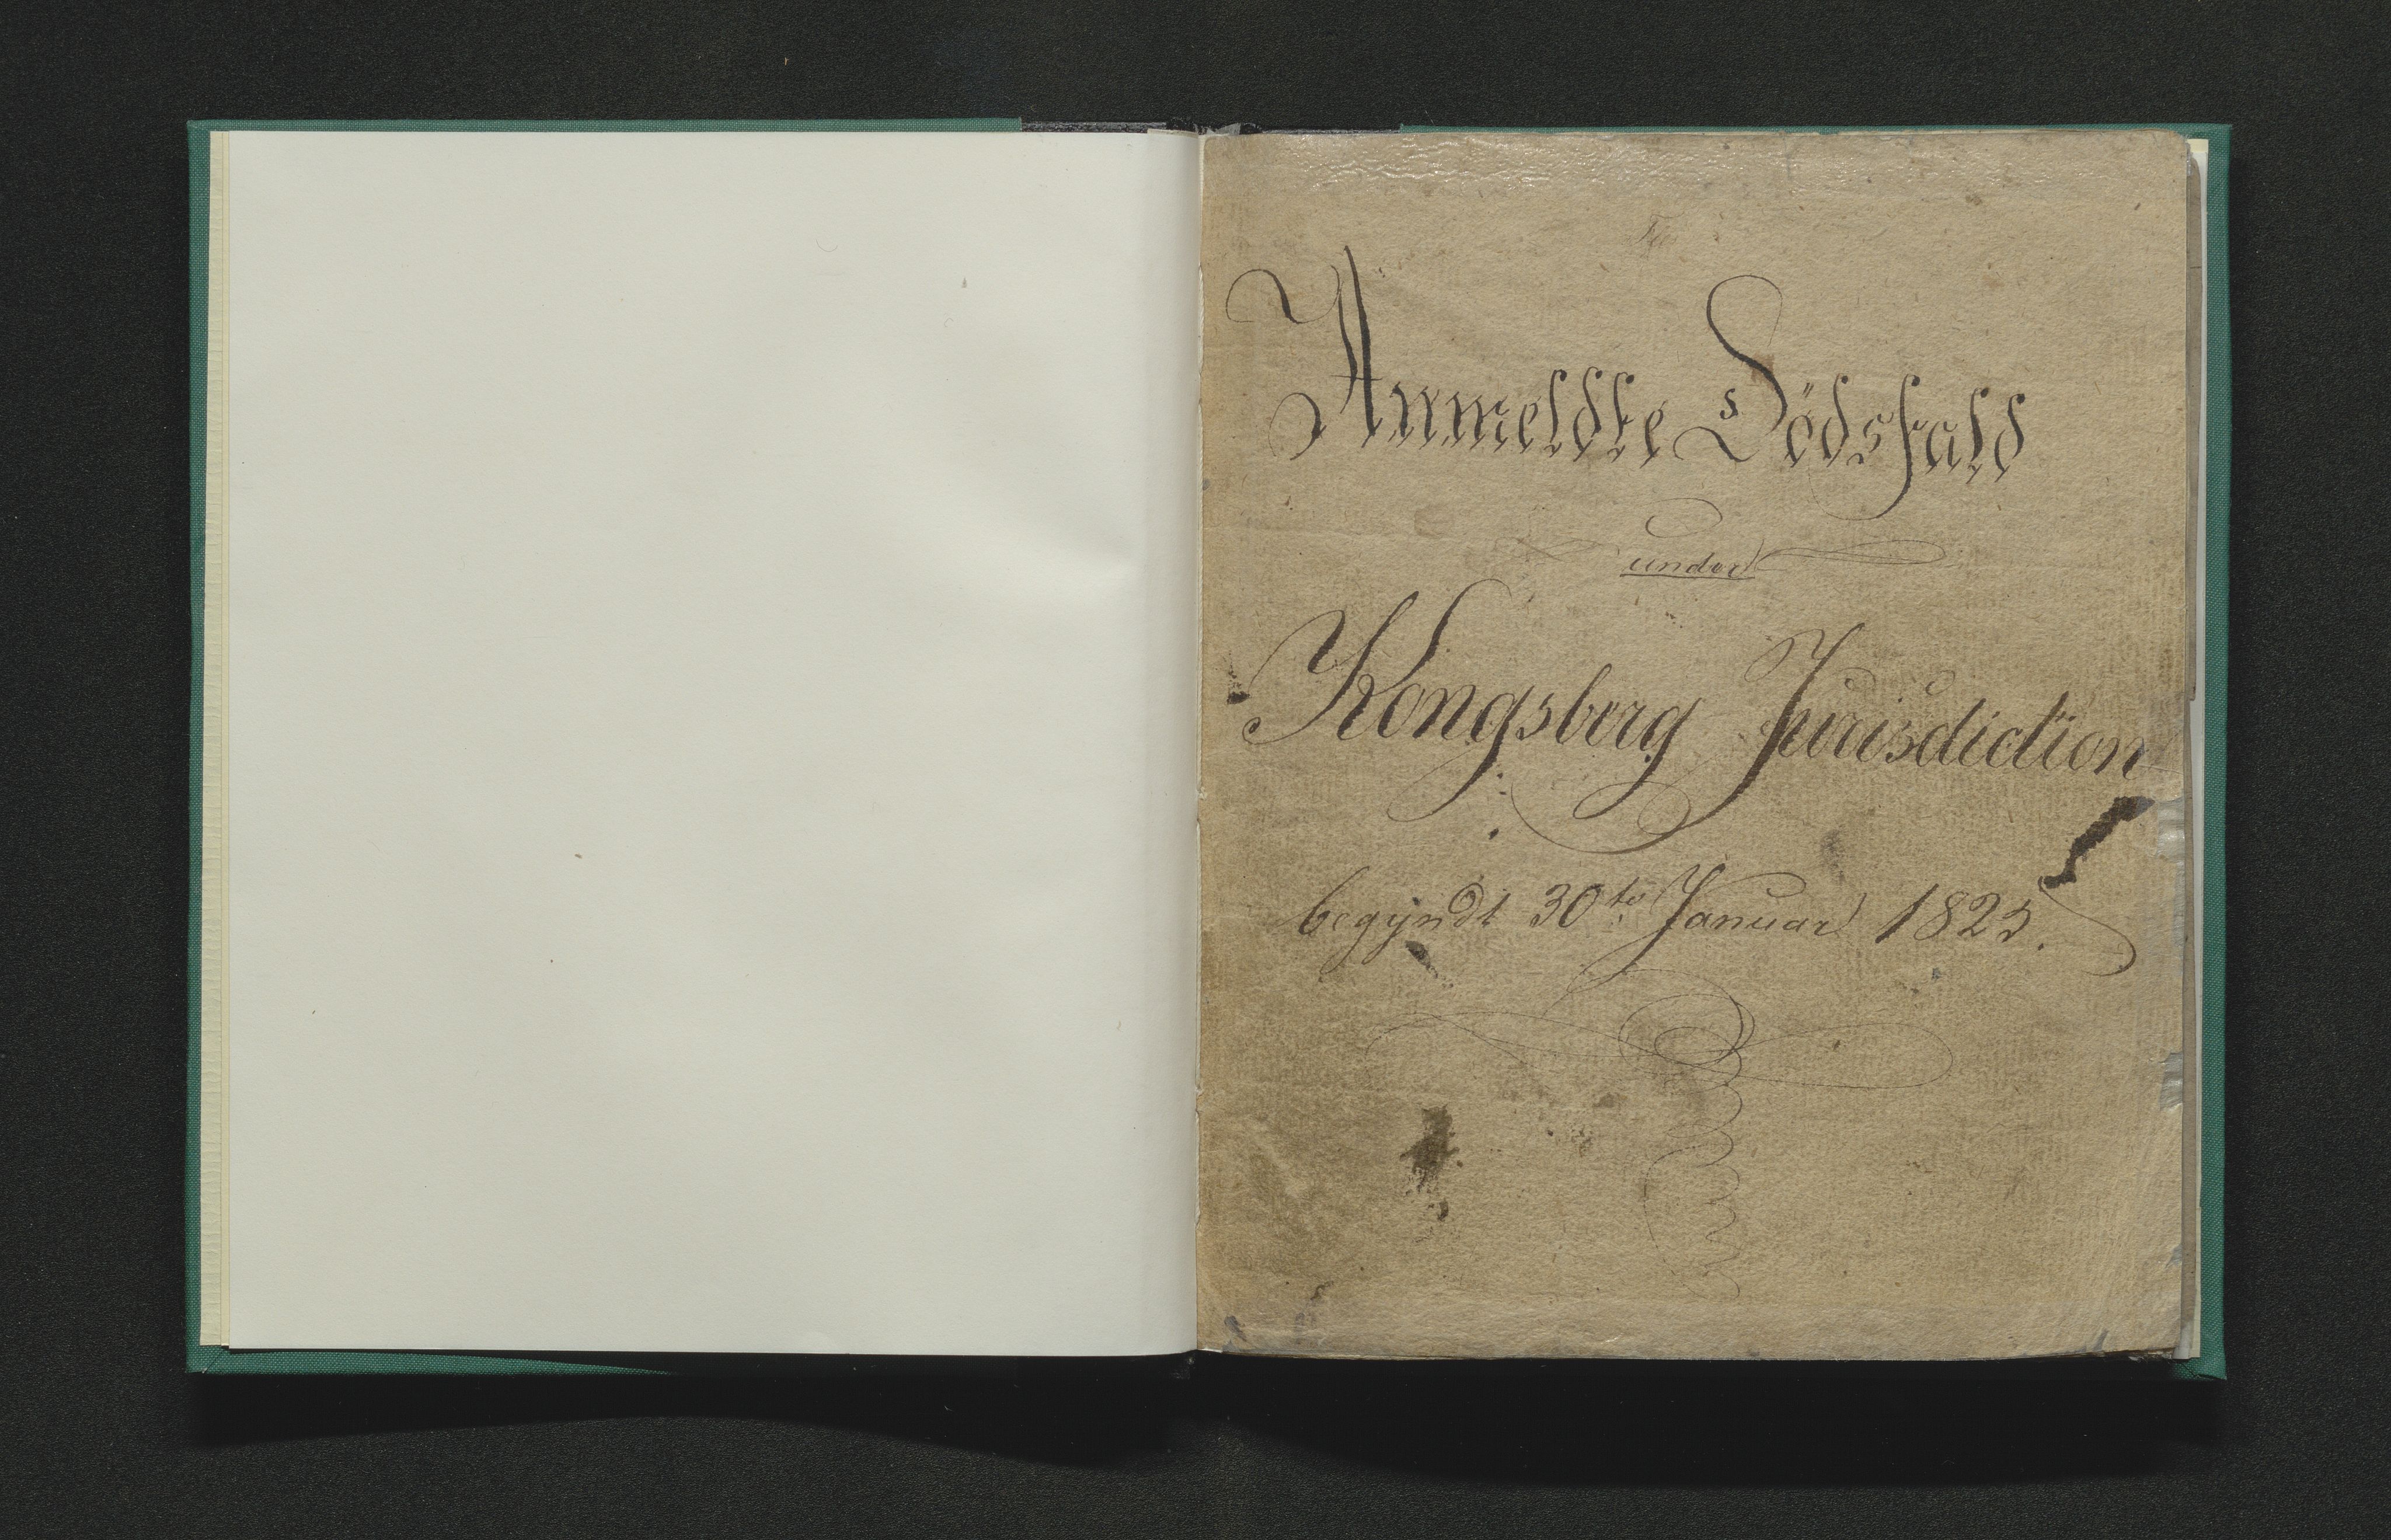 Anmeldte Dödsfald
under
Kongsberg Jurisdiction
begyndt 30te Januar 1825.